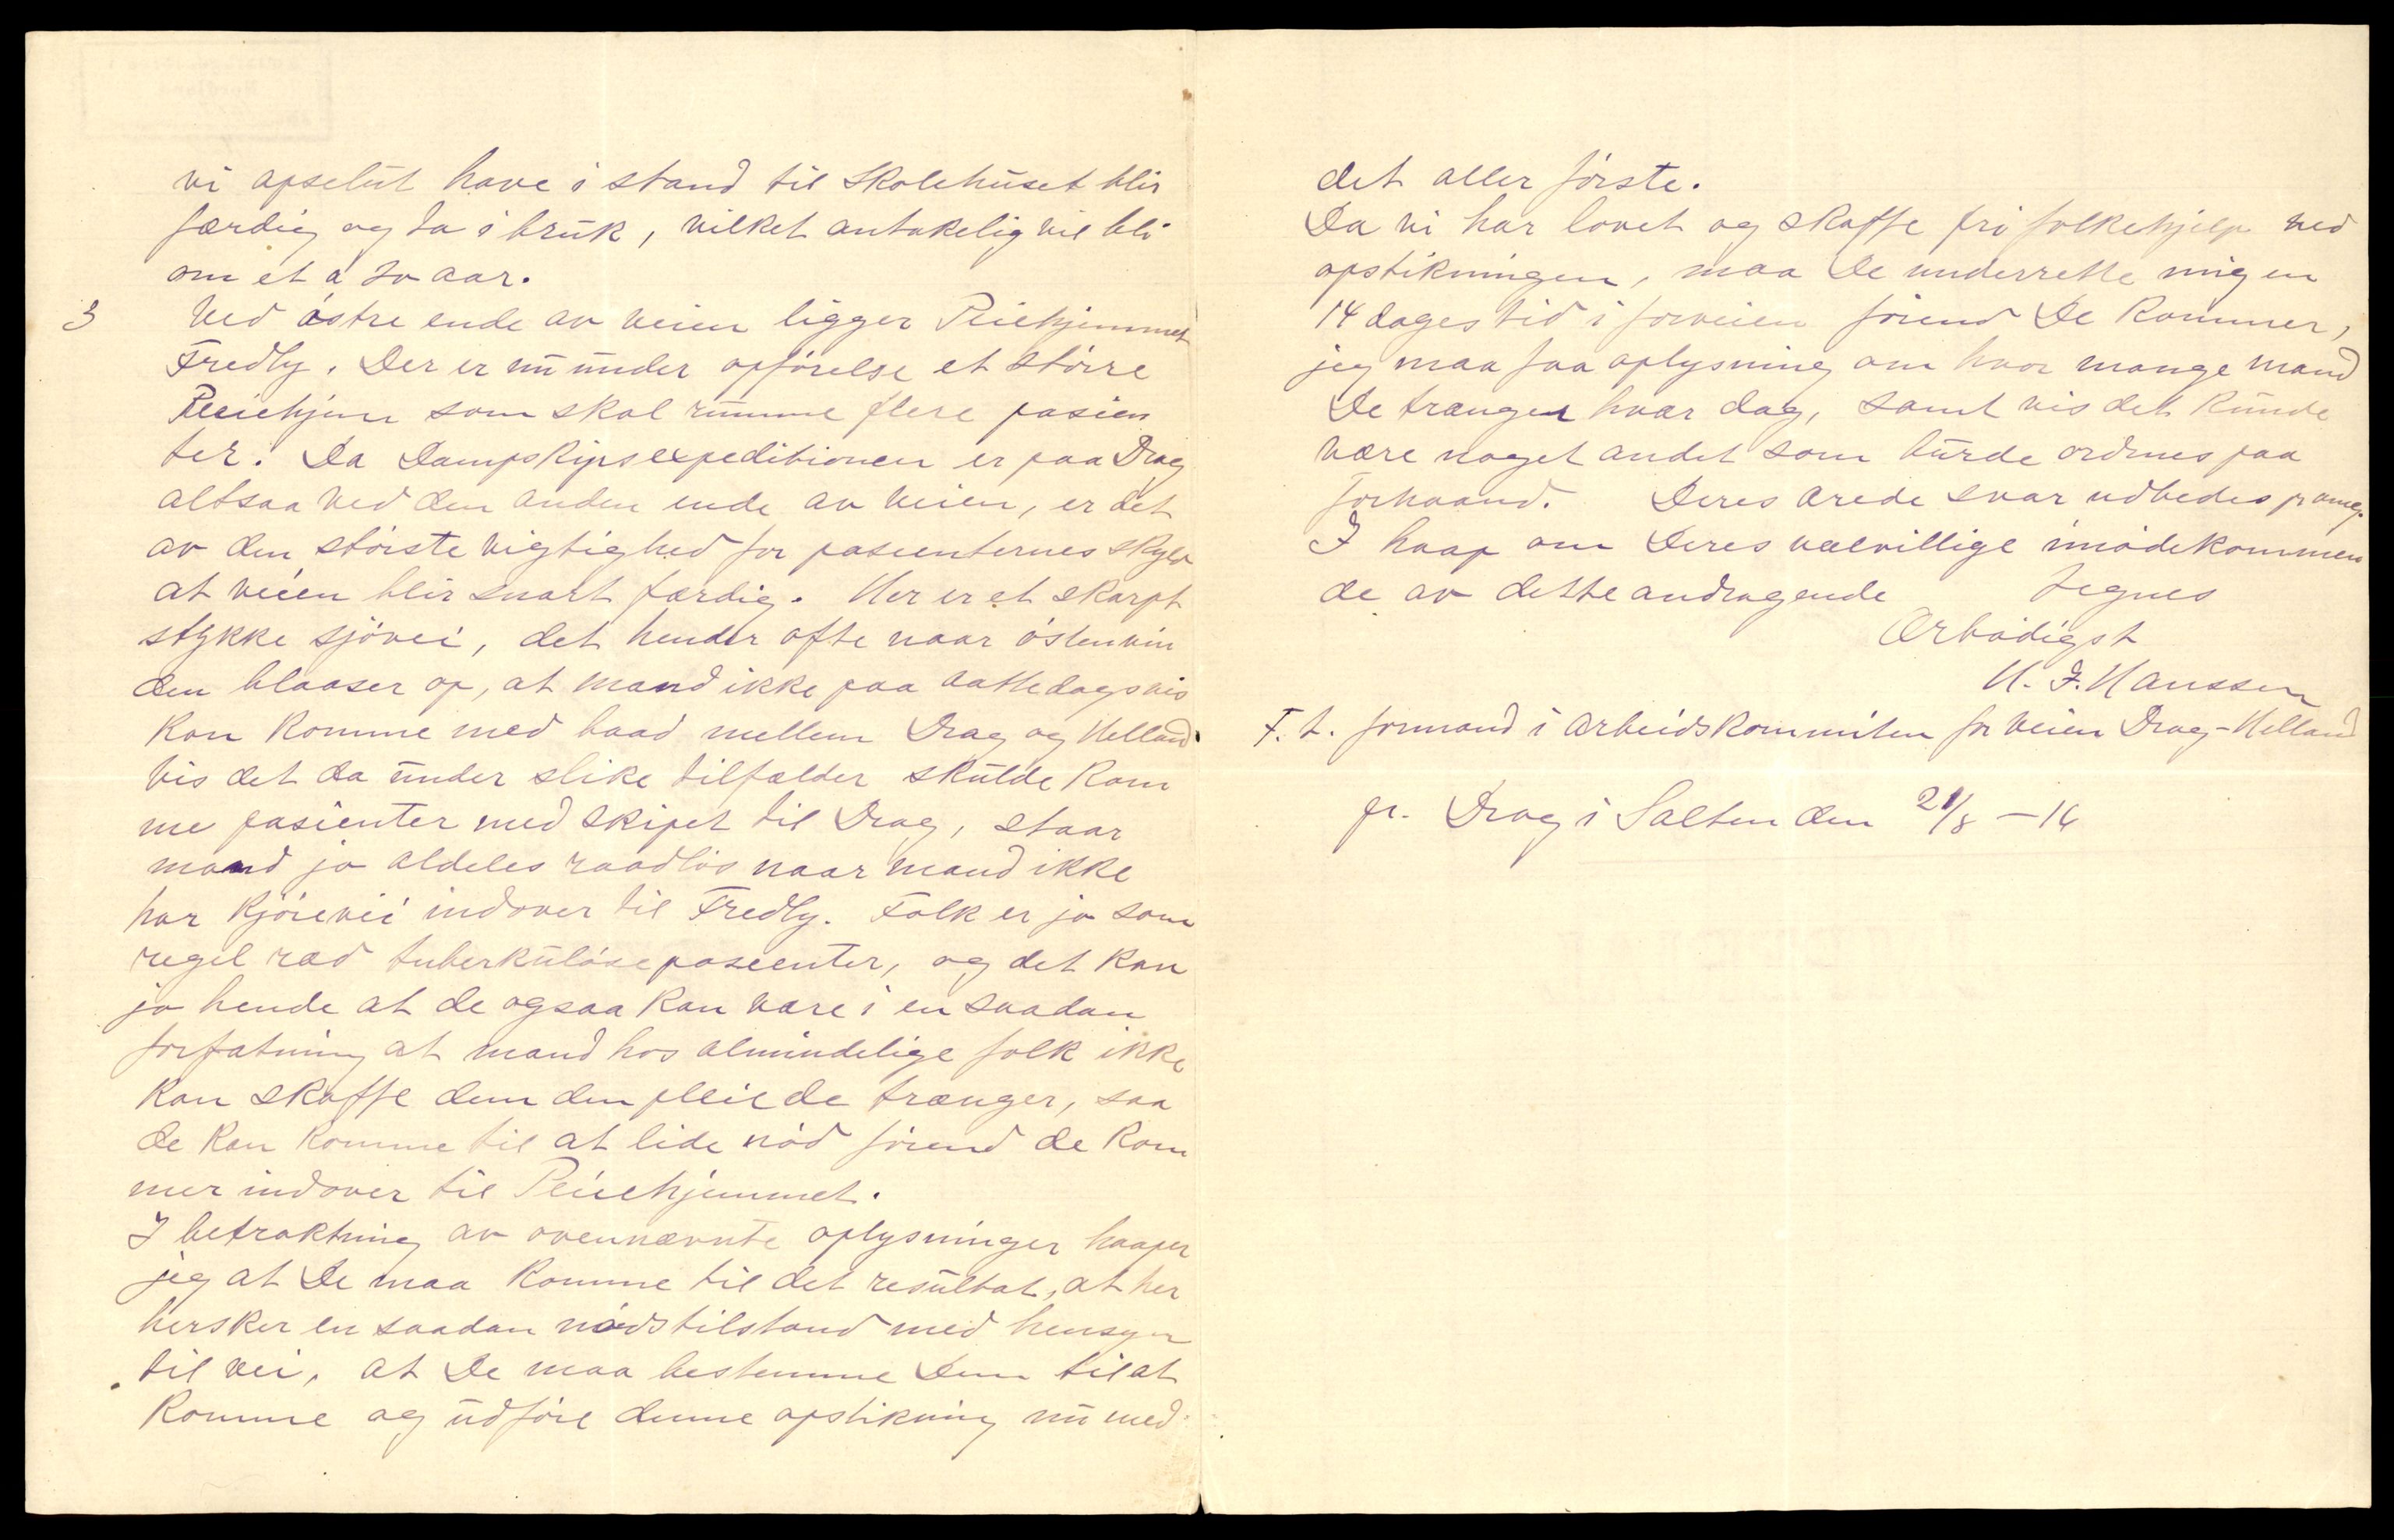 vi apselut have i stand til Skolehuset blir
færdig og ta i bruk, vilket antakelig vil bli
om et a to aar.
3 Ved østre ende av veien ligger Pleiehjemmet
Fredly. Der er nu under opførelse et større
Pleiehjem som skal rumme flere pasien
ter. Da Dampskipsexpeditionen er paa Drag
altsaa ved den anden ende av veien, er det
av den største vigtighed for pasienternes skyld
at veien blir snart færdig. Her er et skarpt
stykke sjøvei, det hender ofte naar østenvin
den blaaser op, at mand ikke paa aattedagsvis
kan komme med baad mellem Drag og Helland.
Vis det da under slike tilfælder skulde kom
me pasienter med skipet til Drag, staar
mand jo aldeles raadløs naar mand ikke
har kjørevei indover til Fredly. Folk er jo som
regel ræd tuberkuløse pasienter, og det kan
jo hende at de ogsaa kan være i en saadan
forfatning at mand hos almindelige folk ikke
kan skaffe dem den pleie de trænger, saa
de kan komme til at lide nød førend de kom
mer indover til Pleiehjemmet.
I betraktning av ovennævnte oplysninger haaper
jeg at De maa komme til det resultat, at her
hersker en saadan nødstilstand med hensyn
til vei, at De maa bestemme Dem til at
komme og udføre denne opstikning nu med
det aller første.
Da vi har lovet og skaffe fri folkehjelp ved
opstikningen, maa De underrette mig en
14 dages tid i forveien førend De kommer,
jeg maa faa oplysning om hvor mange mand
De trænger hvær dag, samt vis det kunde
være noget andet som burde ordnes paa
forhaand. Deres ærede svar udbedes pr omg.
I haap om Deres velvillige imødekommen
de av dette andragende tegnes
Ærbødigst
H. J. Hanssen
F. t. formand i Arbeidskommiten for veien Drag-Helland
pr. Drag i Salten den 21/8 - 16